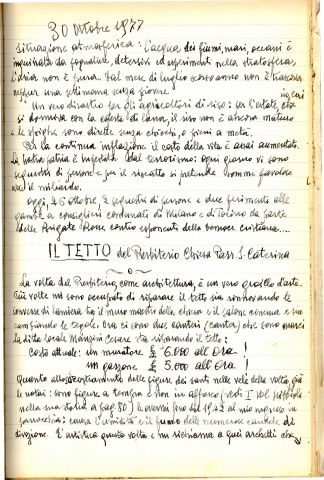 30 Ottobre 1977
Situazione atmosferica: l'acqua dei fiumi, mari, oceani è
inquinata da fognature, detersivi ed esperimenti nella stratosfera,
l'aria non è pura. Dal mese di luglio scorso anno non è trascorsa
neppur una settimana senza piovere.
Un vero disastro per gli agricoltori di riso: per l'estate, che
si domina con la colpa di luna, il riso non è ancora maturo
e le spighe sono diritte senza chicchi, o pieni a metà.
Per la continua inflazione il costo della vita è assai aumentato.
La nostra patria è infestata dal terrorismo: ogni giorno vi sono
sequestri di persone e per il riscatto si pretende somme favolose
oltre il miliardo.
Oggi, 26 ottobre, 2 sequestri di persone e due ferimenti alle
gambe a consiglieri comunali di Milano e di Torino da parte
delle Brigate Rosse contro esponenti della democr. cristiana....
IL TETTO del Presbiterio Chiesa Parr. S. Caterina
La volta del Presbiterio, come architettura, è un vero gioiello d'arte.
Più volte mi sono occupato di riparare il tetto sia rinnovando le
converse di lamiera tra il muro maestro della chiesa e il salone cinema e sia
cambiando le tegole. Ora ci sono due cantieri (cantoy) che sono
la ditta locale Manzini Cesare sta riparando il tetto:
Costo attuale: un muratore £ 6.000 all'ora!
un garzone £ 5.000 all'ora!
Quanto allo scrostamento delle figure dei santi nelle vele della volta già
le notai: sono figure a tempra e non in affresco (vedi I vol.
nella sua storia a pag. 80) le osservai fino dal 1942 al mio ingresso in
parrocchia: causa l'umidità e il fumo delle numerose candele di
divozione. L'artistica questa volta e mi richiama a quei archetti che